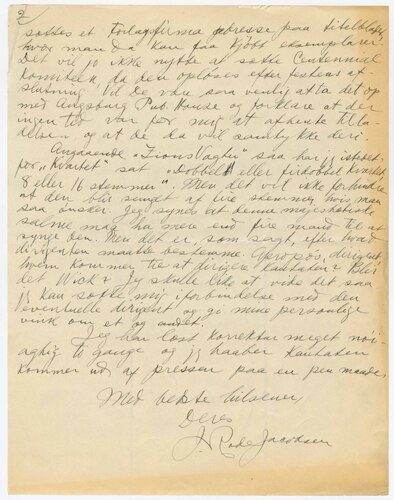 2
sættes et Forlagsfirma adresse paa titelbladet,
hvor man da kan faa kjøbt exemplarer.
Det vil jo ikke nytte at sætte Centennial
komiteen, da den opløses efter festens af-
slutning. Vil De være saa venlig at ta det op
med Augsburg Pub. House og forklare at der
ingen tid var for mig at afvente tilla-
delsen og at de da vil samtykke deri.
Angaaende "Zions Vægter" saa har jeg istedet
for "Kvartet" sat "Dobbelt eller firdobbel kvartet
8 eller 16 stemmer". Men det vil ikke forhindre
at den blir sunget af fire stemmer hvis man
saa ønsker. Jeg synes at denne majestætiske
salme maa ha mere end fire mand til at
synge den. Men det er, som sagt, efter hvad
dirigenten maatte bestemme. Apropos, dirigent,
hvem kommer til at dirigere Kantaten? Blir
det Wick? Jeg skulle like at vide det saa
jeg kan sætte mig i forbindelse med den
eventuelle dirigent og gi mine personlige
vink om et og andet.
Jeg har læst korrektur meget nøi-
agtig to gange og jeg haaber Kantaten
kommer ud af pressen paa en pen maade.
Med bedste hilsener,
Deres
J. Rode Jacobsen